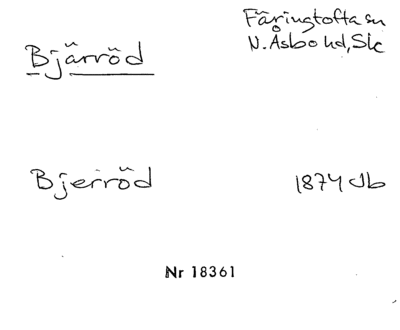 Bjärröd
Färingtofta sn
N. Åsbo hd, Sk
Bjerröd
1874 Jb
Nr 18361